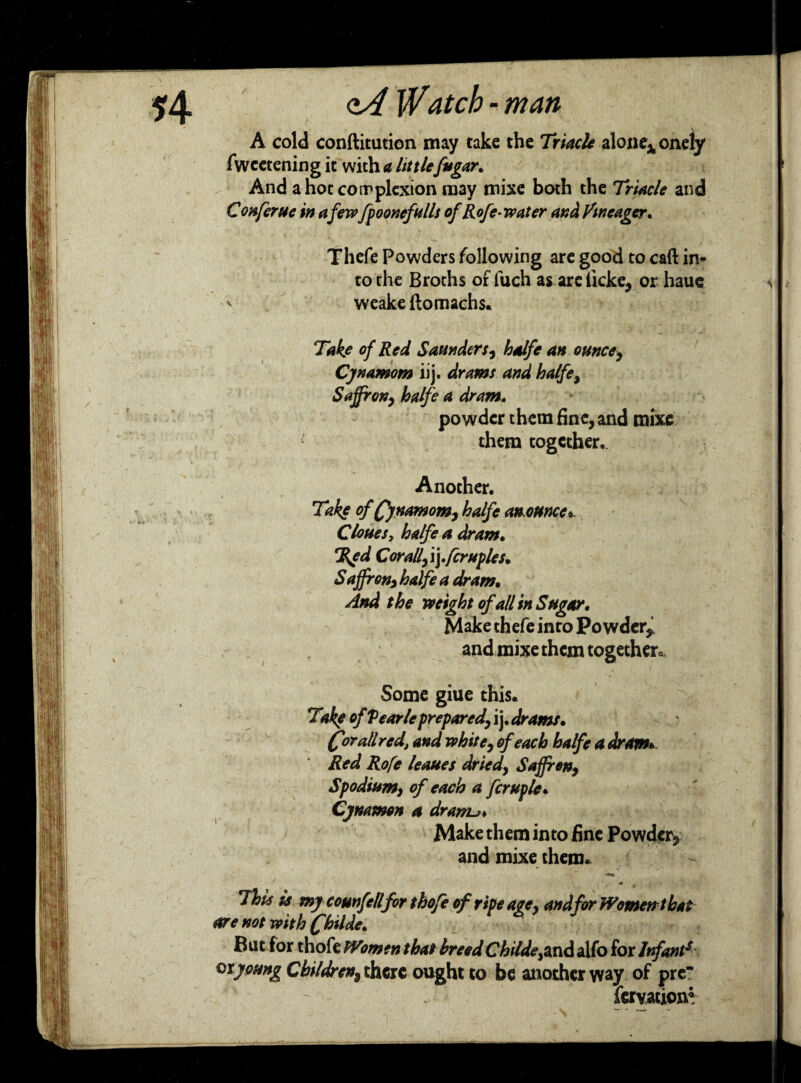 54 A Watch-man
A cold conſtitution may take the Triacle alone, onely
ſweetening it with a little ſugar.
And a hot complexion may mixe both the Triacle and
Conſerue in a few ſpoonefulls of Roſe-water and Vineager.
Theſe Powders following are good to caſt in-
to the Broths of ſuch as are ſicke, or haue
weake ſtomachs.
Take of Red Saunders, halfe an ounce,
Cynamom iij. drams and halfe,
Saffron, halfe a dram.
powder them fine, and mixe
them together.
Another.
Take of Cynamom, halfe an ounce.
Cloues, halfe a dram.
Red Corall, ij. ſcruples.
Saffron, halfe a dram.
And the weight of all in Sugar.
Make theſe into Powder,
and mixe them together.
Some giue this.
Take of Pearle prepared, ij. drams.
Corall red, and white, of each halfe a dram.
Red Roſe leaues dried, Saffron,
Spodium, of each a ſcruple.
Cynamon a dram.
Make them into fine Powder,
and mixe them.
This is my counſell for thoſe of ripe age, and for Women that
are not with Childe.
But for thoſe Women that breed Childe, and alſo for Infants
or young Children, there ought to be another way of pre-
ſervation: